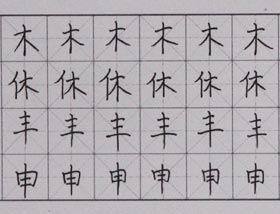 木 木 木 木 木 木
休 休 休 休 休 休
丰 丰 丰 丰 丰 丰
申 申 申 申 申 申